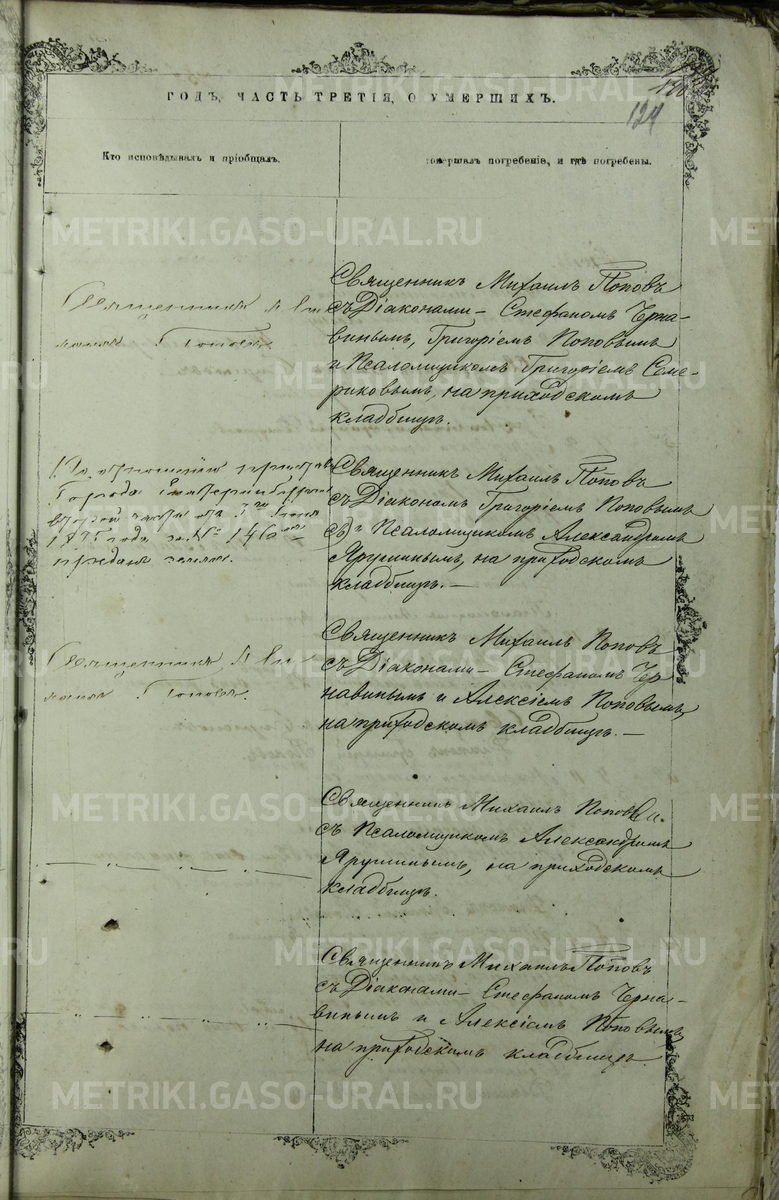 130
124
ГОДЪ, ЧАСТЬ ТРЕТІЯ, О УМЕРШИХЪ.
Кто исповѣдывалъ и пріобщалъ.
совершалъ погребеніе, и гдѣ погребены.
Священникъ Ми
хаилъ Поповъ.
Священникъ Михаилъ Поповъ
съ Діаконами – Стефаномъ Черна-
винымъ, Григоріемъ Поповымъ
и Псаломщикомъ Григоріемъ Семе-
риковымъ, на приходскомъ
кладбищѣ.
По отношенію пристава
Города Екатеринбурга
второй части отъ
года за № 146
преданъ землѣ.
Священникъ Михаилъ Поповъ
съ Діакономъ Григоріемъ Поповымъ
и Псаломщикомъ Александромъ
Ярушинымъ, на приходскомъ
кладбищѣ. —
Священникъ Ми
хаилъ Поповъ.
Священникъ Михаилъ Поповъ
съ Діаконами – Стефаномъ Чер
навинымъ и Алексіемъ Поповымъ,
на приходскомъ кладбищѣ. —
Священникъ Михаилъ Поповъ
съ Псаломщикомъ Александромъ
Ярушинымъ, на приходскомъ
кладбищѣ.
Священникъ Михаилъ Поповъ
съ Діаконами – Стефаномъ Черна-
винымъ и Алексіемъ Поповымъ,
на приходскомъ кладбищѣ.
METRIKI.GASO-URAL.RU